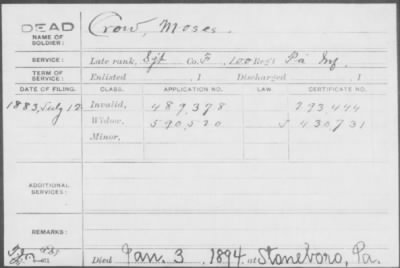 DEAD
NAME OF SOLDIER: Crow, Moses.
SERVICE: Late rank, Sgt Co. F, 100 Reg't Pa Inf
TERM OF SERVICE: Enlisted , 1 Discharged , 1
DATE OF FILING. CLASS. APPLICATION NO. LAW. CERTIFICATE NO.
1883, July 12 Invalid, 489,378 293,444
Widow, 590,520 430,731
Minor,
ADDITIONAL SERVICES:
REMARKS:
Died Jan. 3, 1894, at Stoneboro, Pa.